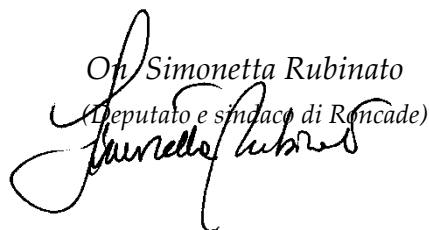 On. Simonetta Rubinato
(Deputato e sindaco di Roncade)
Simonetta Rubinato